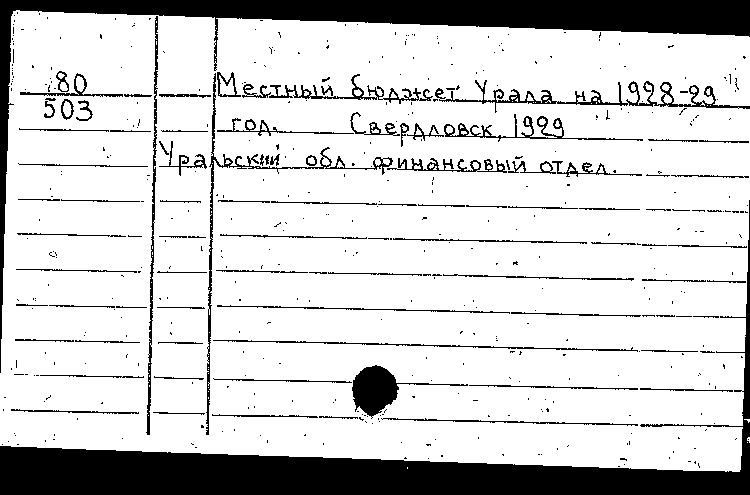 80
503
Местный бюджет Урала на 1928-29
год. Свердловск, 1929
Уральский обл. финансовый отдел.